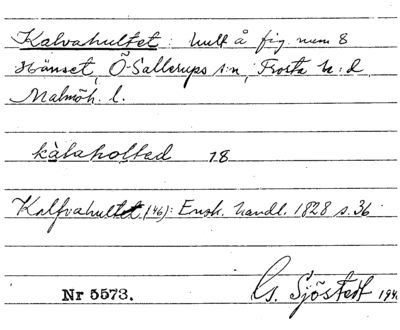 Kalvahultet: hult å fig. num 8
Hänset, Ö-Sallerups s:n, Frosta h:d
Malmöh. l.
kàlaholtad 18
Kalfvahultet (46): Ensk. handl. 1828 s. 36
Nr 5573. G. Sjöstedt